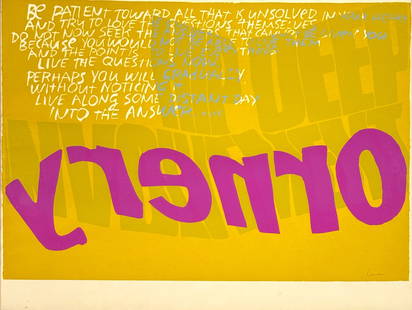 BE PATIENT TOWARD ALL THAT IS UNSOLVED IN
AND TRY TO LOVE THE QUESTIONS THEMSELVES
DO NOT NOW SEEK THE ANSWERS THAT CANNOT BE GIVEN YOU
BECAUSE YOU WOULD NOT BE ABLE TO LIVE THEM
AND THE POINT IS TO LIVE EVERYTHING
LIVE THE QUESTIONS NOW
PERHAPS YOU WILL GRADUALLY
WITHOUT NOTICING IT
LIVE ALONG SOME DISTANT DAY
INTO THE ANSWER
Ornery